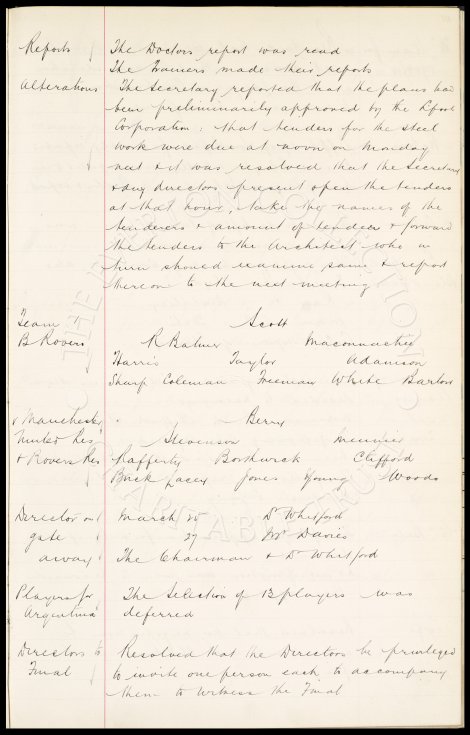 Reports The Doctors report was read
The Trainers made their reports
Alterations The Secretary reported that the plans had
been preliminarily approved by the L'pool
Corporation, that tenders for the steel
work were due at noon on Monday
next & it was resolved that the Secretary
& any directors present open the tenders
at that hour, take the names of the
tenderers & amount of tenders & forward
the tenders to the Architect who in
turn should examine same & report
thereon to the next meeting
Team Scott
B Rovers R Balmer Maconnachie
Harris Taylor Adamson
Sharp Coleman Freeman White Barlow
v Manchester Berry
United Res Stevenson Meunier
& Rovers Res Rafferty Borthwick Clifford
Buck Lacey Jones Young Woods
Director on March 25 Dr Whitford
gate 27 Mr Davies
away The Chairman & Dr Whitford
Players for The Selection of 13 players was
Argentina deferred
Directors to Resolved that the Directors be privileged
Final to invite one person each to accompany
them to witness the Final